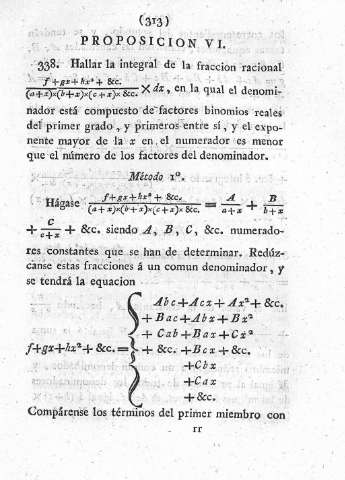 (313)
PROPOSICION VI.
338. Hallar la integral de la fraccion racional
f+gx+hx²+ &c. / (a+x)×(b+x)×(c+x)× &c. × dx, en la qual el denomi-
nador está compuesto de factores binomios reales
del primer grado, y primeros entre sí, y el expo-
nente mayor de la x en el numerador es menor
que el número de los factores del denominador.
Método 1º.
Hágase f+gx+hx²+ &c. / (a+x)×(b+x)×(c+x)×&c. = A / a+x + B / b+x
+ C / c+x + &c. siendo A, B, C, &c. numerado-
res constantes que se han de determinar. Redúz-
canse estas fracciones á un comun denominador, y
se tendrá la equacion
Abc+Acx+Ax²+ &c.
+ Bac+Abx+Bx²
+ Cab+Bax+Cx²
f+gx+hx²+ &c.= + &c. +Bcx+ &c.
+Cbx
+Cax
+ &c.
Compárense los términos del primer miembro con
rr